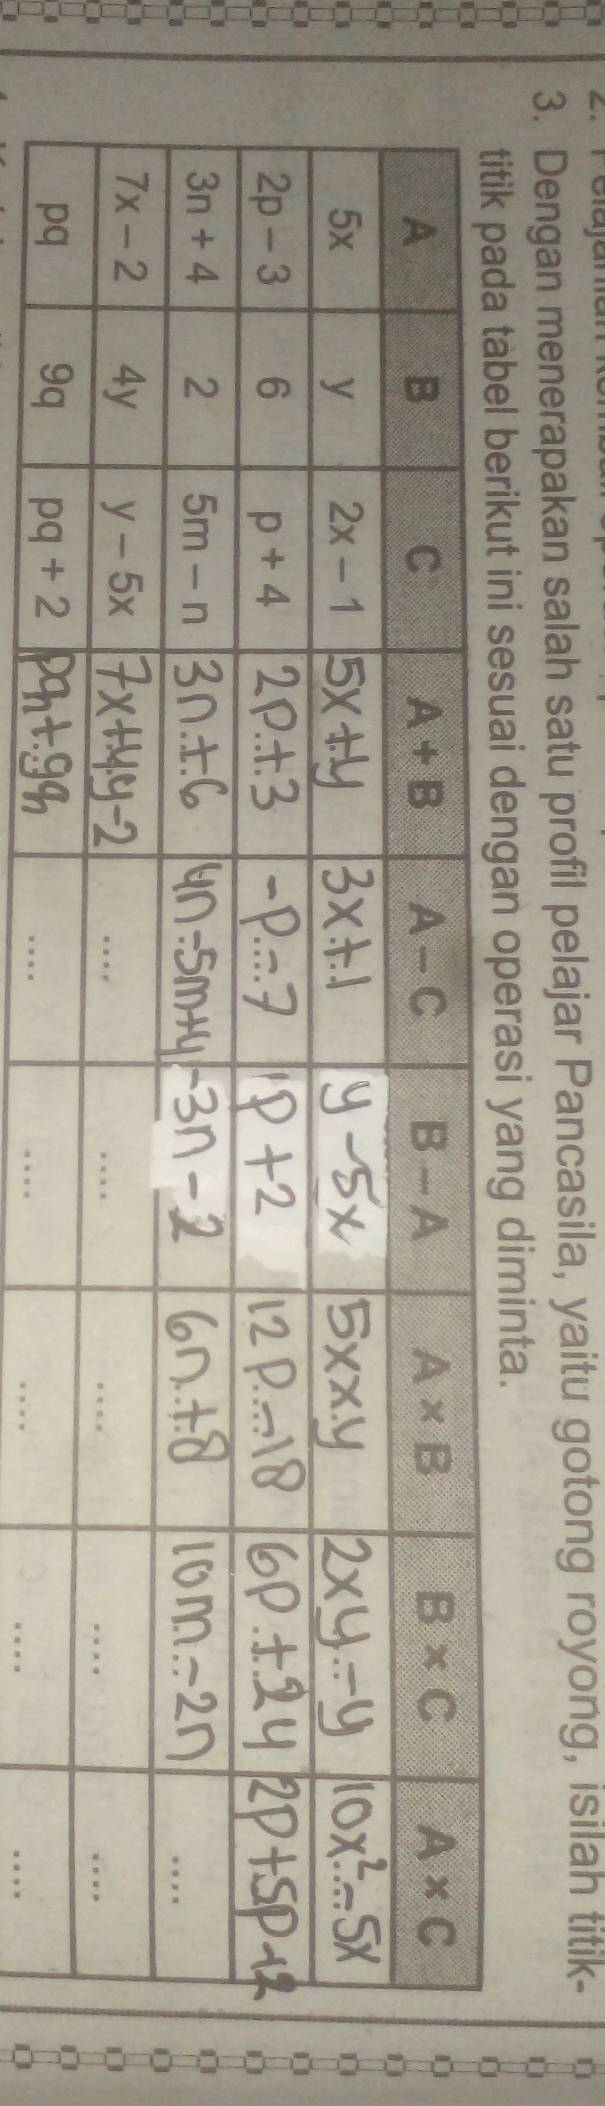 3. Dengan menerapakan salah satu profil pelajar Pancasila, yaitu gotong royong, isilah titik-
titik pada tabel berikut ini sesuai dengan operasi yang diminta.
A B C A + B A - C B - A A × B B × C A × C
5x y 2x - 1 5x + y 3x + 1 y - 5x 5x x y 2xy - y 10x² - 5x
2p - 3 6 p + 4 2p + 3 -p - 7 p + 2 12p - 18 6p + 24 2p + 5p - 12
3n + 4 2 5m - n 3n + 6 4n - 5m + 4 -3n - 2 6n + 8 10m - 2n ....
7x - 2 4y y - 5x 7x + 4y - 2 .... .... .... .... ....
pq 9q pq + 2 pq + 9q .... .... .... .... ....